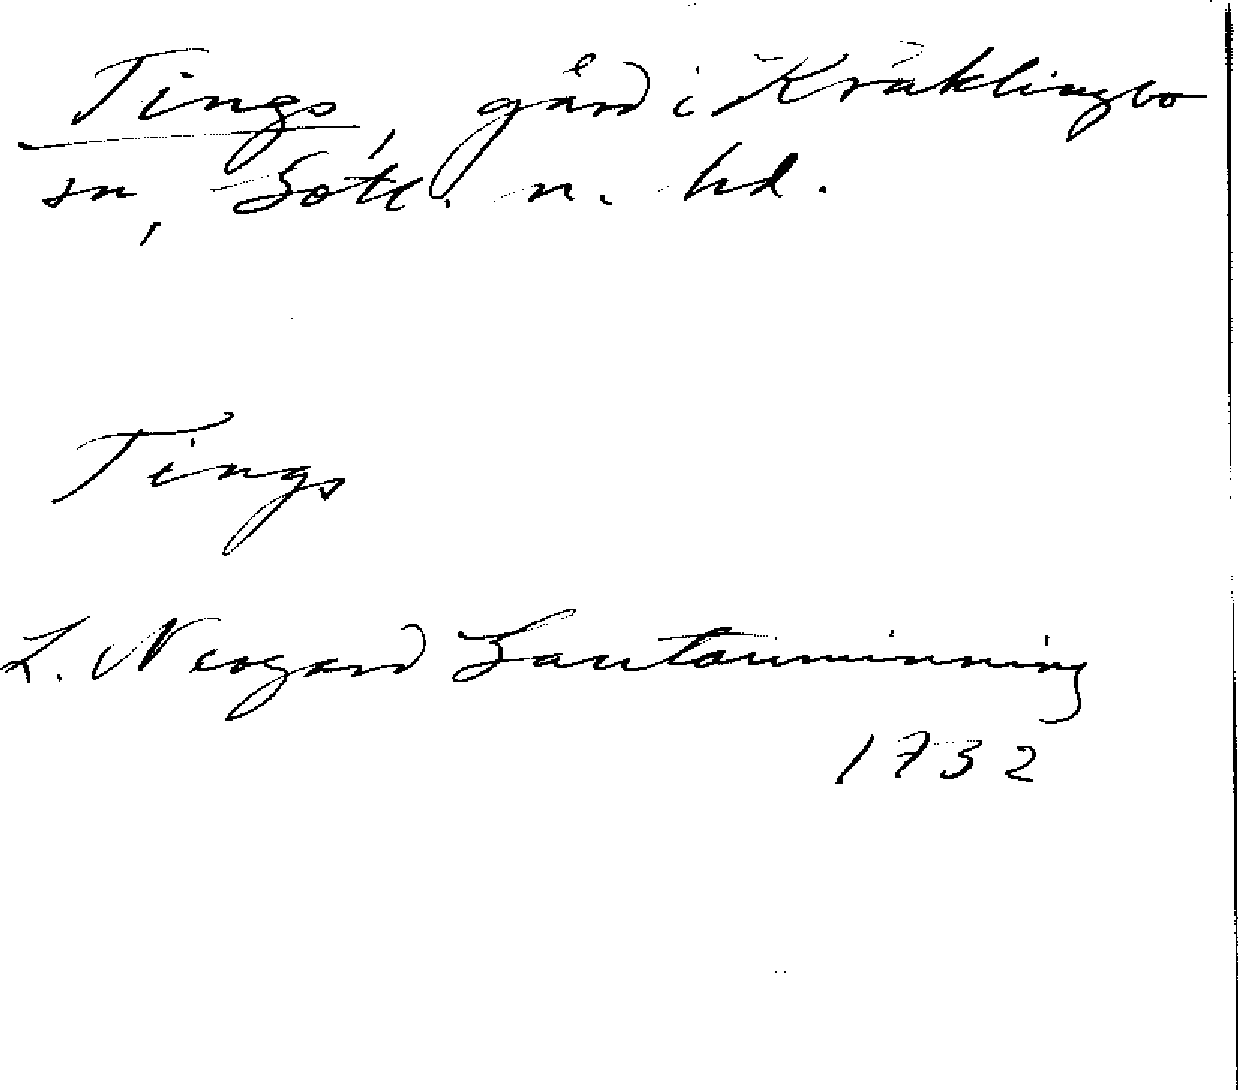 Tings, gård i Kräklingbo
sn, Gotl. n. hd.
Tings
L. Neogard Gautauminning
1732